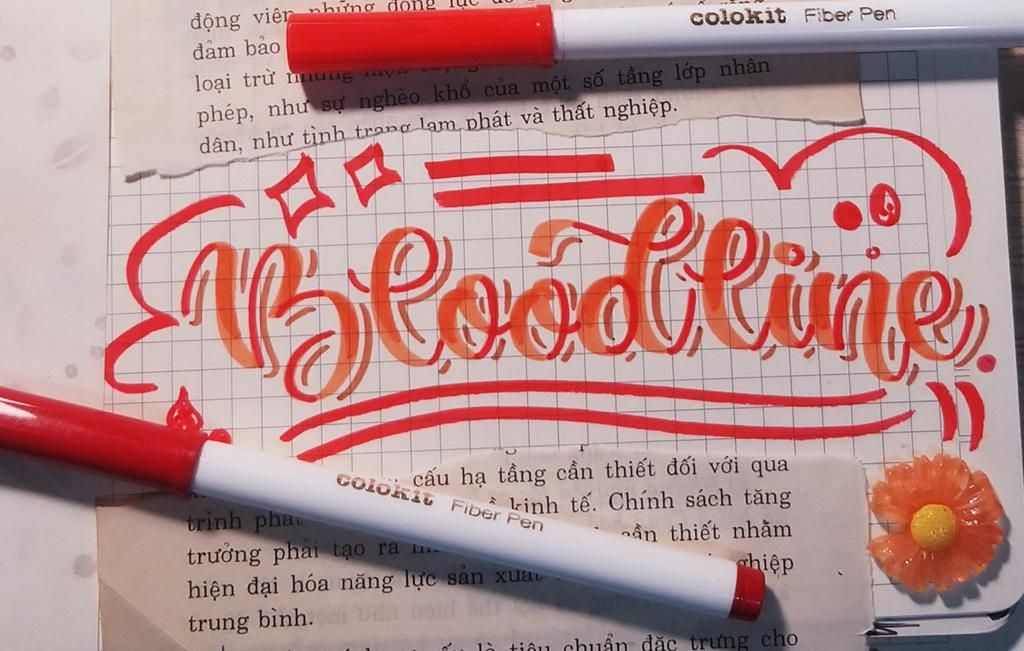 động viên những động lực
đảm bảo
loại trừ những
phép, như sự nghèo khổ của một số tầng lớp nhân
dân, như tình trạng lạm phát và thất nghiệp.
colokit Fiber Pen
Bloodline
cấu hạ tầng cần thiết đối với qua
trình phát kinh tế. Chính sách tăng
trưởng phải tạo ra cần thiết nhằm
hiện đại hóa năng lực sản xuất nghiệp
trung bình.
colokit Fiber Pen
là tiêu chuẩn đặc trưng cho